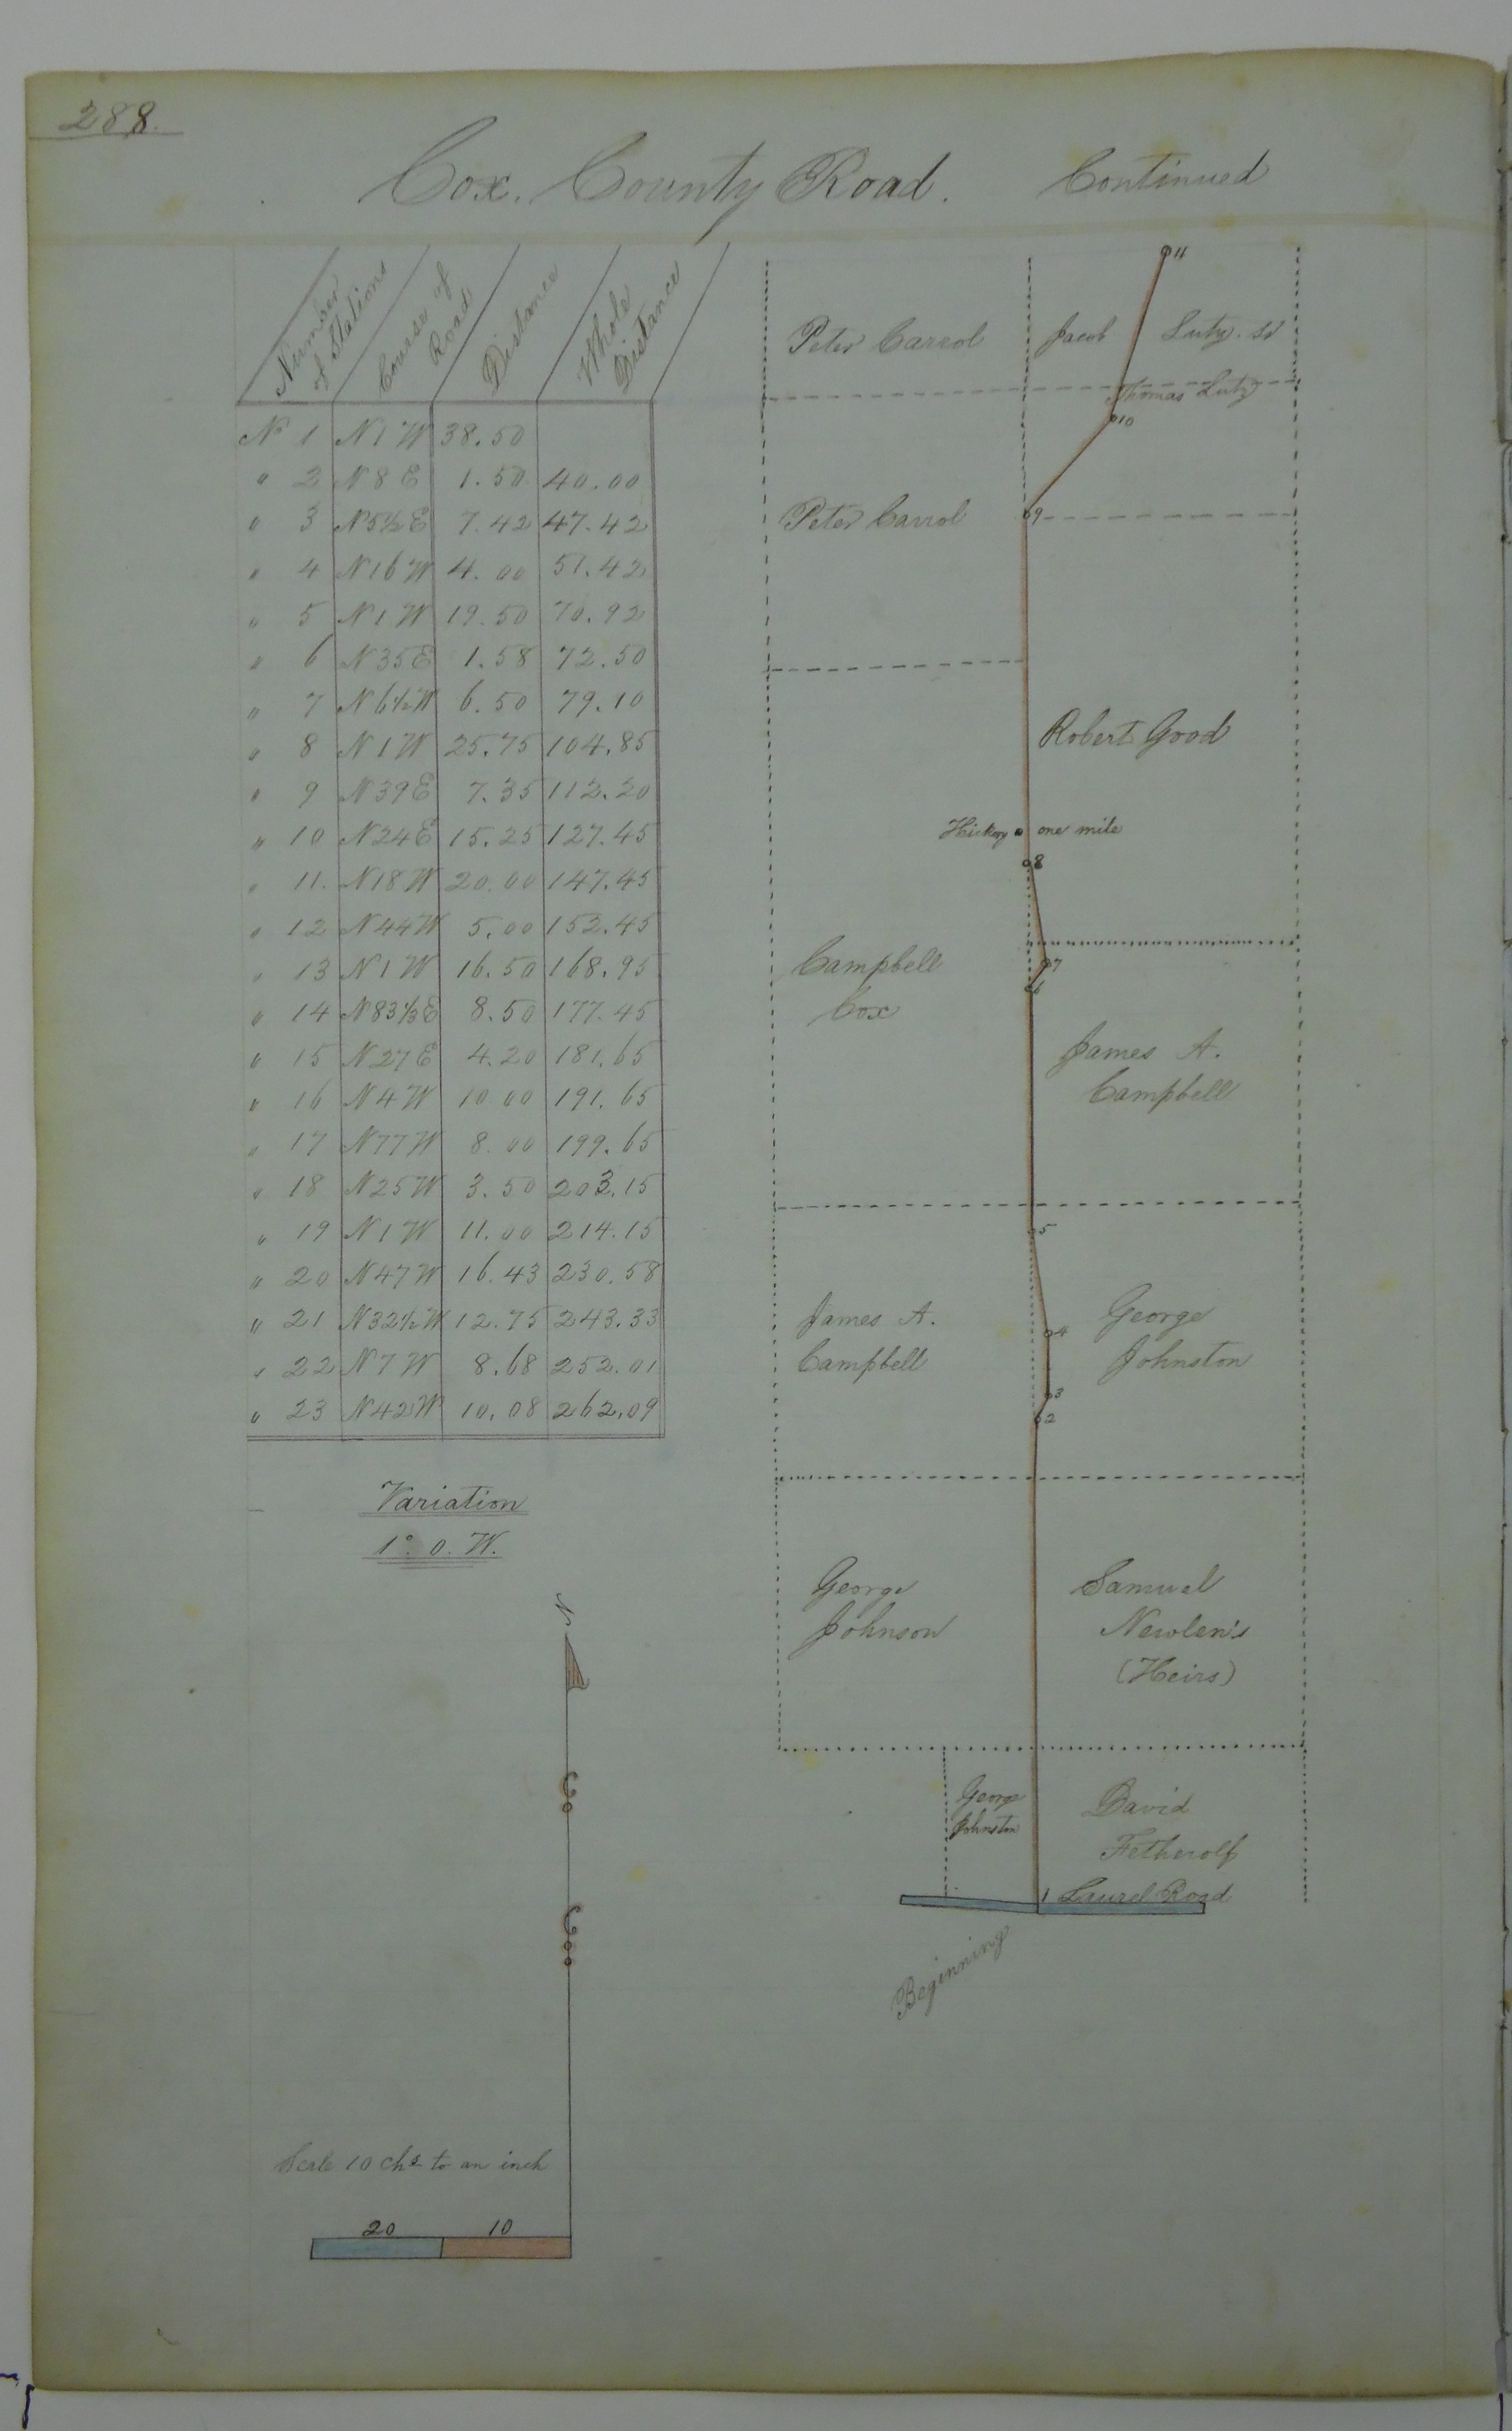 288.
Cox. County Road. Continued
Number of Stations | Course of Road | Distance | Whole Distance
No 1 | N 1 W | 38.50
" 2 | N 8 E | 1.50 | 40.00
" 3 | N 5½ E | 7.42 | 47.42
" 4 | N 16 W | 4.00 | 51.42
" 5 | N 1 W | 19.50 | 70.92
" 6 | N 35 E | 1.58 | 72.50
" 7 | N 6½ W | 6.50 | 79.10
" 8 | N 1 W | 25.75 | 104.85
" 9 | N 39 E | 7.35 | 112.20
" 10 | N 24 E | 15.25 | 127.45
" 11. | N 18 W | 20.00 | 147.45
" 12 | N 44 W | 5.00 | 152.45
" 13 | N 1 W | 16.50 | 168.95
" 14 | N 83⅓ E | 8.50 | 177.45
" 15 | N 27 E | 4.20 | 181.65
" 16 | N 4 W | 10.00 | 191.65
" 17 | N 77 W | 8.00 | 199.65
" 18 | N 25 W | 3.50 | 203.15
" 19 | N 1 W | 11.00 | 214.15
" 20 | N 47 W | 16.43 | 230.58
" 21 | N 32½ W | 12.75 | 243.33
" 22 | N 7 W | 8.68 | 252.01
" 23 | N 42 W | 10.08 | 262.09
Variation
1° 0. W.
N
Scale 10 chs to an inch
20 10
11
Peter Carrol Jacob Lutz. Sr
Thomas Lutz
10
Peter Carrol 9
Robert Good
Hickory one mile
8
7
6
Campbell
Cox
James A.
Campbell
5
James A.
Campbell
4
George
Johnston
3
2
George
Johnson
Samuel
Newlen's
(Heirs)
George
Johnston
David
Fetherolf
1 Laurel Road
Beginning